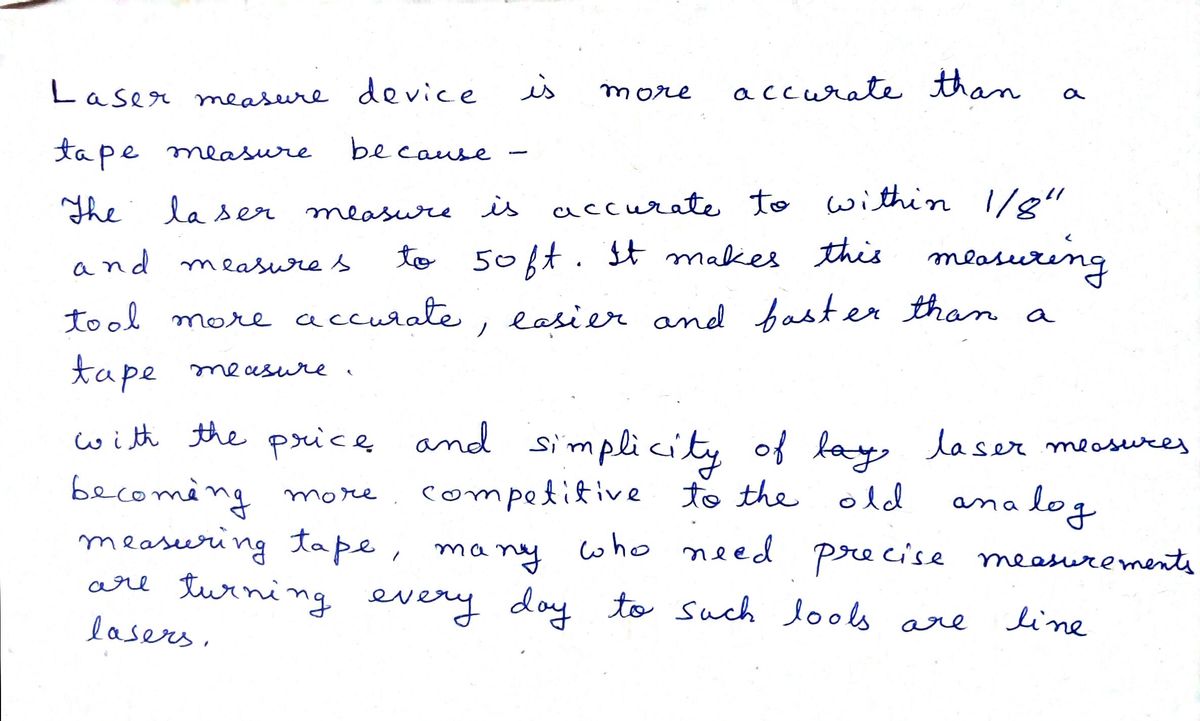 Laser measure device is more accurate than a
tape measure because -
The laser measure is accurate to within 1/8"
and measures to 50ft. It makes this measuring
tool more accurate, easier and faster than a
tape measure.
with the price and simplicity of lays laser measures
becoming more competitive to the old analog
measuring tape, many who need precise measurements
are turning every day to such lools are line
lasers.